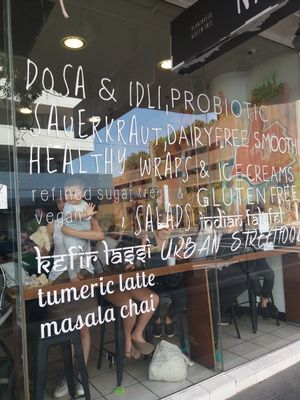 PLANT BASED
GLUTEN FREE
DOSA & IDLI, PROBIOTIC
SAUERKRAUT, DAIRY FREE SMOOTH
HEALTHY WRAPS & ICECREAMS
refined sugar free & GLUTEN FREE
vegan SALADS indian
kefir lassi URBAN STREETFOOD
tumeric latte
masala chai